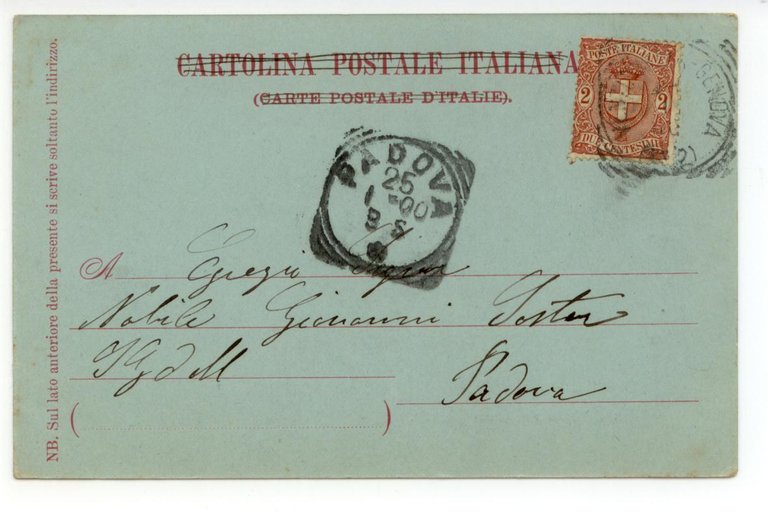 CARTOLINA POSTALE ITALIANA
(CARTE POSTALE D'ITALIE).
POSTE ITALIANE
2 2
DUE CENTESIMI
GENOVA
PADOVA
25
1-00
8 S
A Egregio Signor
Nobile Giovanni
Padova
NB. Sul lato anteriore della presente si scrive soltanto l'indirizzo.